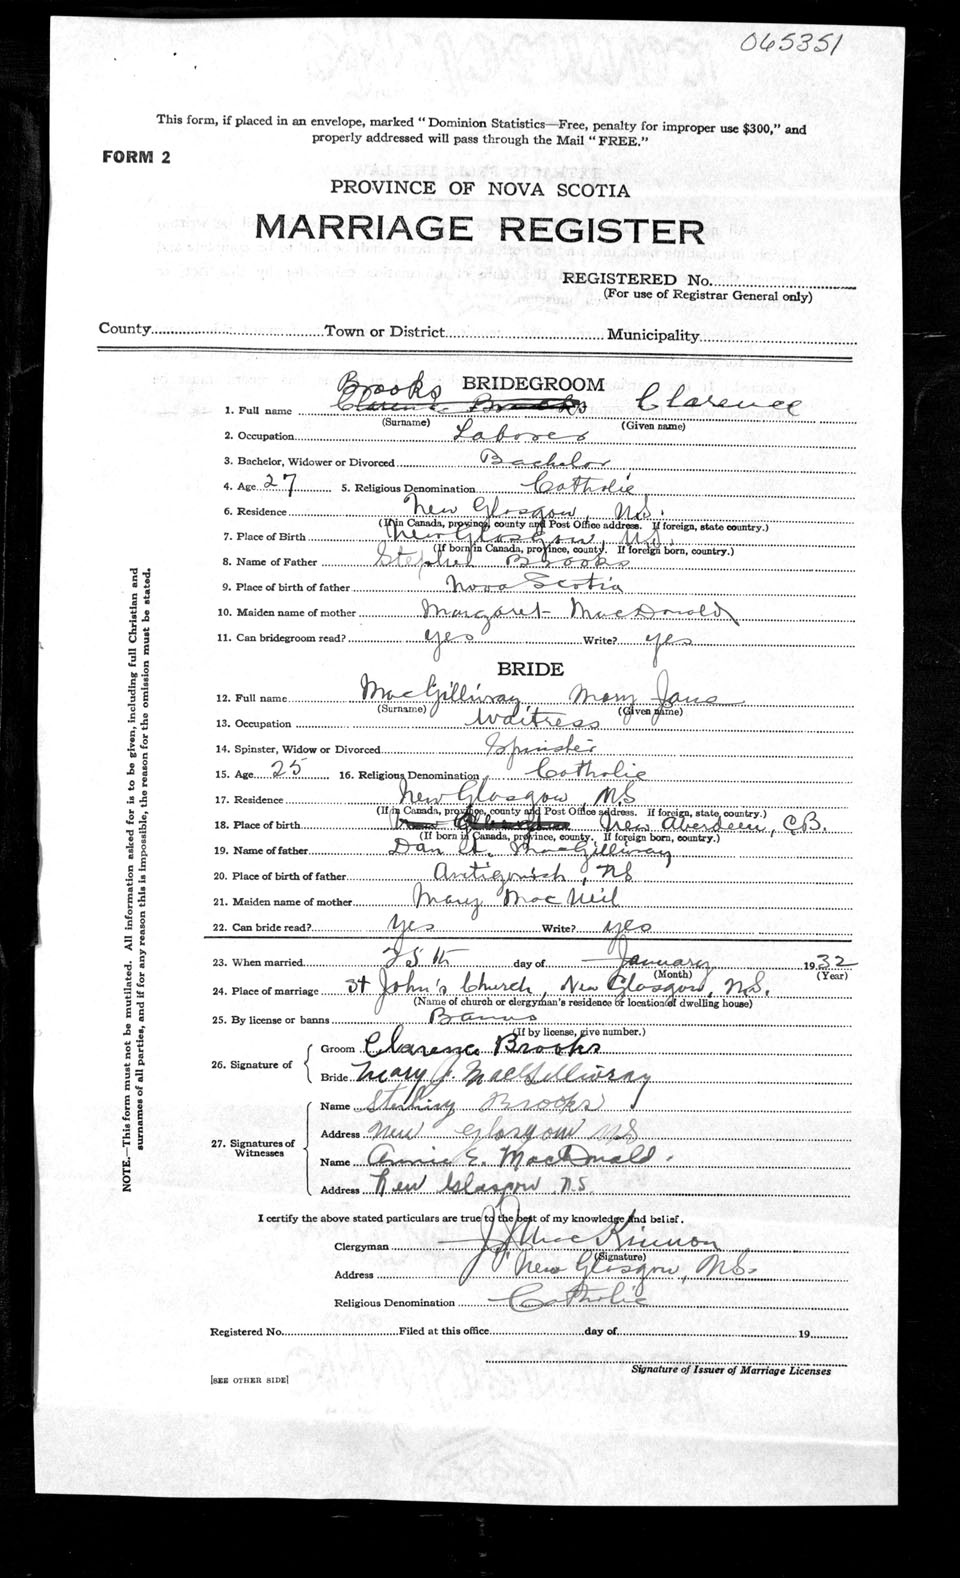 065351
This form, if placed in an envelope, marked "Dominion Statistics—Free, penalty for improper use $300," and
properly addressed will pass through the Mail "FREE."
FORM 2
PROVINCE OF NOVA SCOTIA
MARRIAGE REGISTER
REGISTERED No.
(For use of Registrar General only)
County Town or District Municipality
BRIDEGROOM
Brooks
1. Full name Clarence Brooks Clarence
(Surname) (Given name)
2. Occupation Laborer
3. Bachelor, Widower or Divorced Bachelor
4. Age 27 5. Religious Denomination Catholic
6. Residence New Glasgow, N.S.
(If in Canada, province, county and Post Office address. If foreign, state country.)
7. Place of Birth New Glasgow, N.S.
(If born in Canada, province, county. If foreign born, country.)
8. Name of Father Stephen Brooks
9. Place of birth of father Nova Scotia
10. Maiden name of mother Margaret MacDonald
11. Can bridegroom read? yes Write? yes
BRIDE
12. Full name MacGillivray Mary Jane
(Surname) (Given name)
13. Occupation Waitress
14. Spinster, Widow or Divorced Spinster
15. Age 25 16. Religious Denomination Catholic
17. Residence New Glasgow, N.S
(If in Canada, province, county and Post Office address. If foreign, state, country.)
18. Place of birth New Glasgow New Aberdeen, C.B.
(If born in Canada, province, county. If foreign born, country.)
19. Name of father Dan MacGillivray
20. Place of birth of father Antigonish, NS
21. Maiden name of mother Mary MacNeil
22. Can bride read? yes Write? yes
23. When married 25th day of January 1932
(Month) (Year)
24. Place of marriage St John's Church, New Glasgow, N.S.
(Name of church or clergyman's residence or location of dwelling house)
25. By license or banns Banns
(If by license, give number.)
26. Signature of
Groom Clarence Brooks
Bride Mary J. MacGillivray
27. Signatures of Witnesses
Name Brooks
Address New Glasgow NS
Name Annie E. MacDonald.
Address New Glasgow N.S.
I certify the above stated particulars are true to the best of my knowledge and belief.
Clergyman J. MacKinnon
(Signature)
Address New Glasgow, N.S.
Religious Denomination Catholic
Registered No. Filed at this office day of 19
Signature of Issuer of Marriage Licenses
[SEE OTHER SIDE]
NOTE.—This form must not be mutilated. All information asked for is to be given, including full Christian and
surnames of all parties, and if for any reason this is impossible, the reason for the omission must be stated.